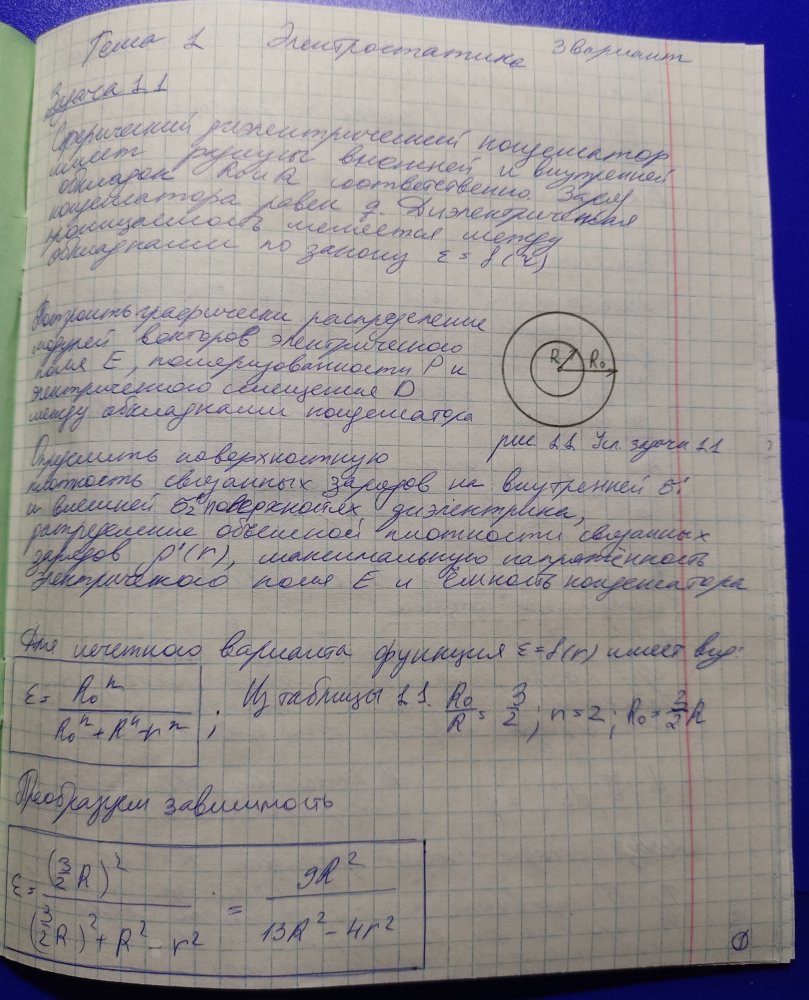 Тема 1 Электростатика 3 вариант
Задача 1.1
Сферический диэлектрический конденсатор
имеет радиусы внешней и внутренней
обкладок R₀ и R соответственно. Заряд
конденсатора равен q. Диэлектрическая
проницаемость меняется между
обкладками по закону ε = f(r)
Построить графически распределение
модулей векторов электрического
поля E, поляризованности P и
электрического смещения D
между обкладками конденсатора
R R₀
рис. 1.1 Усл. задачи 1.1
Определить поверхностную
плотность связанных зарядов на внутренней σ'₁
и внешней σ'₂ поверхностях диэлектрика,
распределение объёмной плотности связанных
зарядов ρ'(r), максимальную напряжённость
электрического поля E и ёмкость конденсатора
Для нечетного варианта функция ε=f(r) имеет вид:
ε = R₀ⁿ / (R₀ⁿ + Rⁿ - rⁿ) ; Из таблицы 1.1. R₀/R = 3/2 ; n = 2 ; R₀ = 3/2 R
Преобразуем зависимость
ε = (3/2 R)² / ((3/2 R)² + R² - r²) = 9R² / (13R² - 4r²)
1